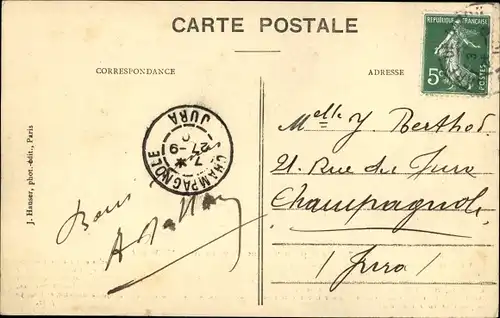 CARTE POSTALE
CORRESPONDANCE
ADRESSE
RÉPUBLIQUE FRANÇAISE
5c
POSTES
CHAMPAGNOLE
7 *
27 -9
JURA
J. Hauser, phot.-édit., Paris
Melle Y Berthod
21 Rue du Jura
Champagnole
(Jura)